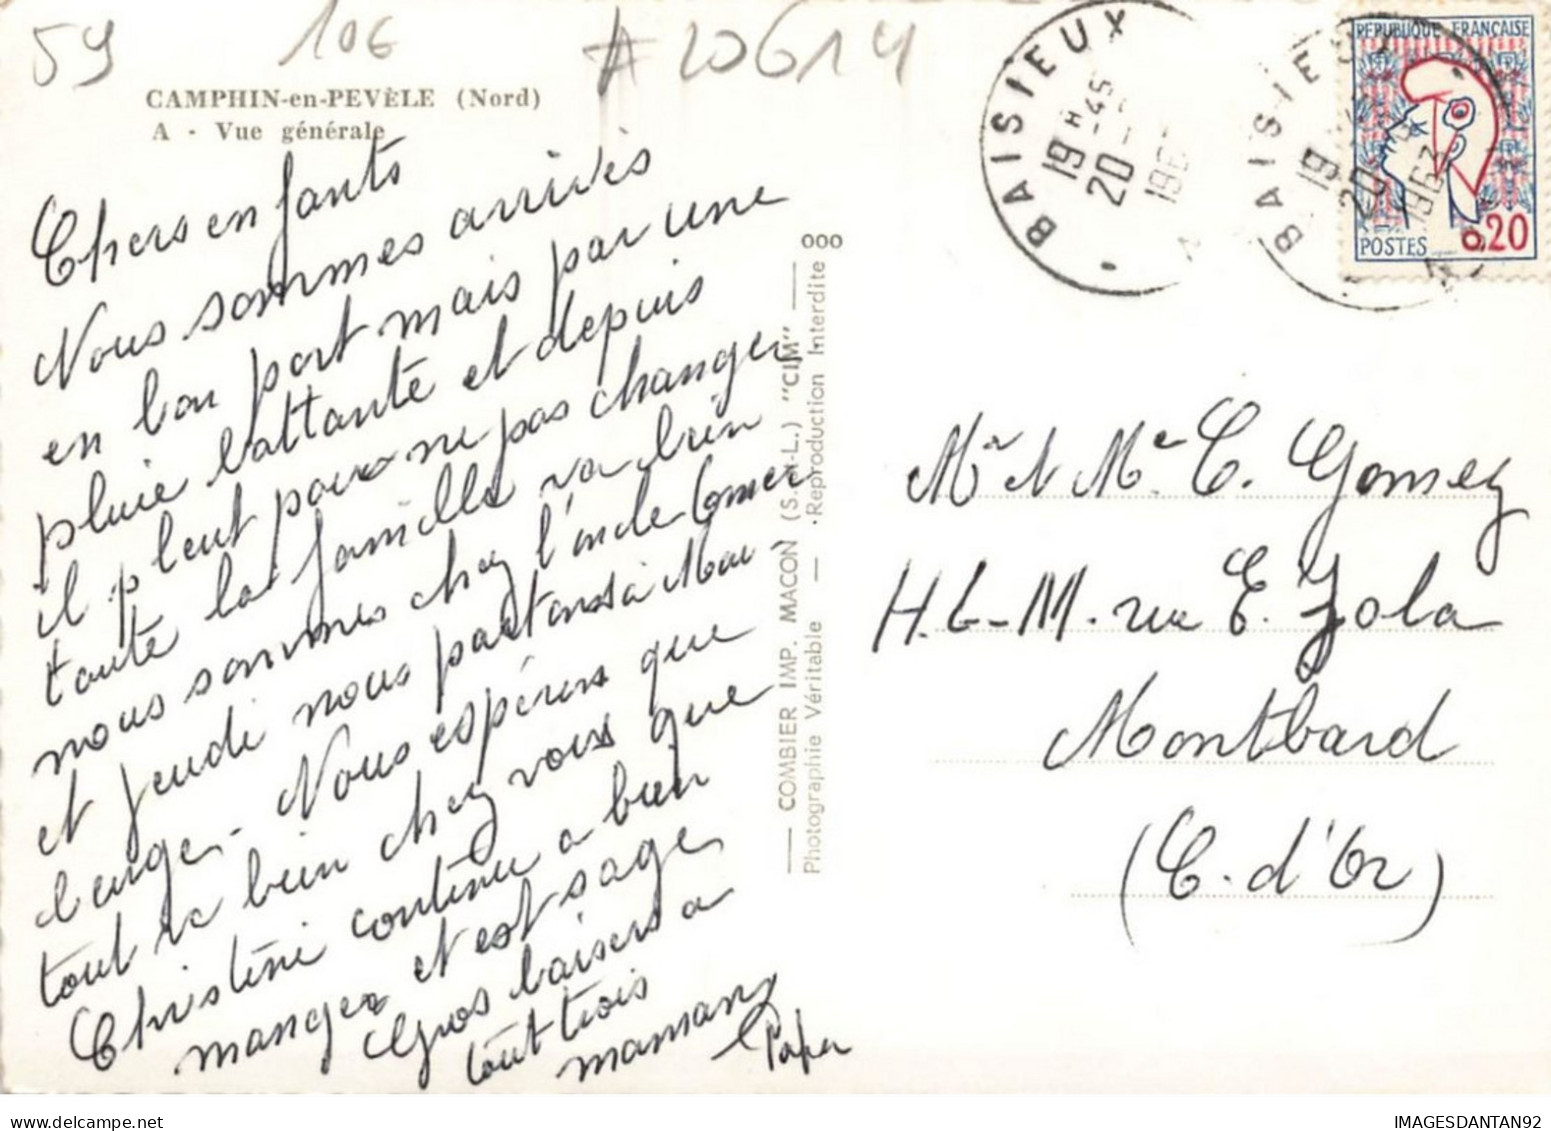 59
10€
# 20614
CAMPHIN-en-PEVÈLE (Nord)
A - Vue générale
Chers enfants
Nous sommes arrivés
en bon port mais par une
pluie battante et depuis
il pleut pour ne pas changer
toute la famille va bien
nous sommes chez l'oncle Gomer
et jeudi nous partons à Mau
beuge. Nous espérons que
tout va bien chez vous que
Christine continue a bien
manger et est sage
Gros baisers a
tout trois
maman
Papa
COMBIER IMP. MACON (S.-&-L.) "CIM"
Photographie Véritable — Reproduction Interdite
000
BAISIEUX
19 H 45
20 -
196
BAISIEUX
19
20
1963
REPUBLIQUE FRANÇAISE
POSTES 0,20
Mr et Me C. Gomez
H.L.M. rue E. Zola
Montbard
(C. d'Or)
IMAGESDANTAN92